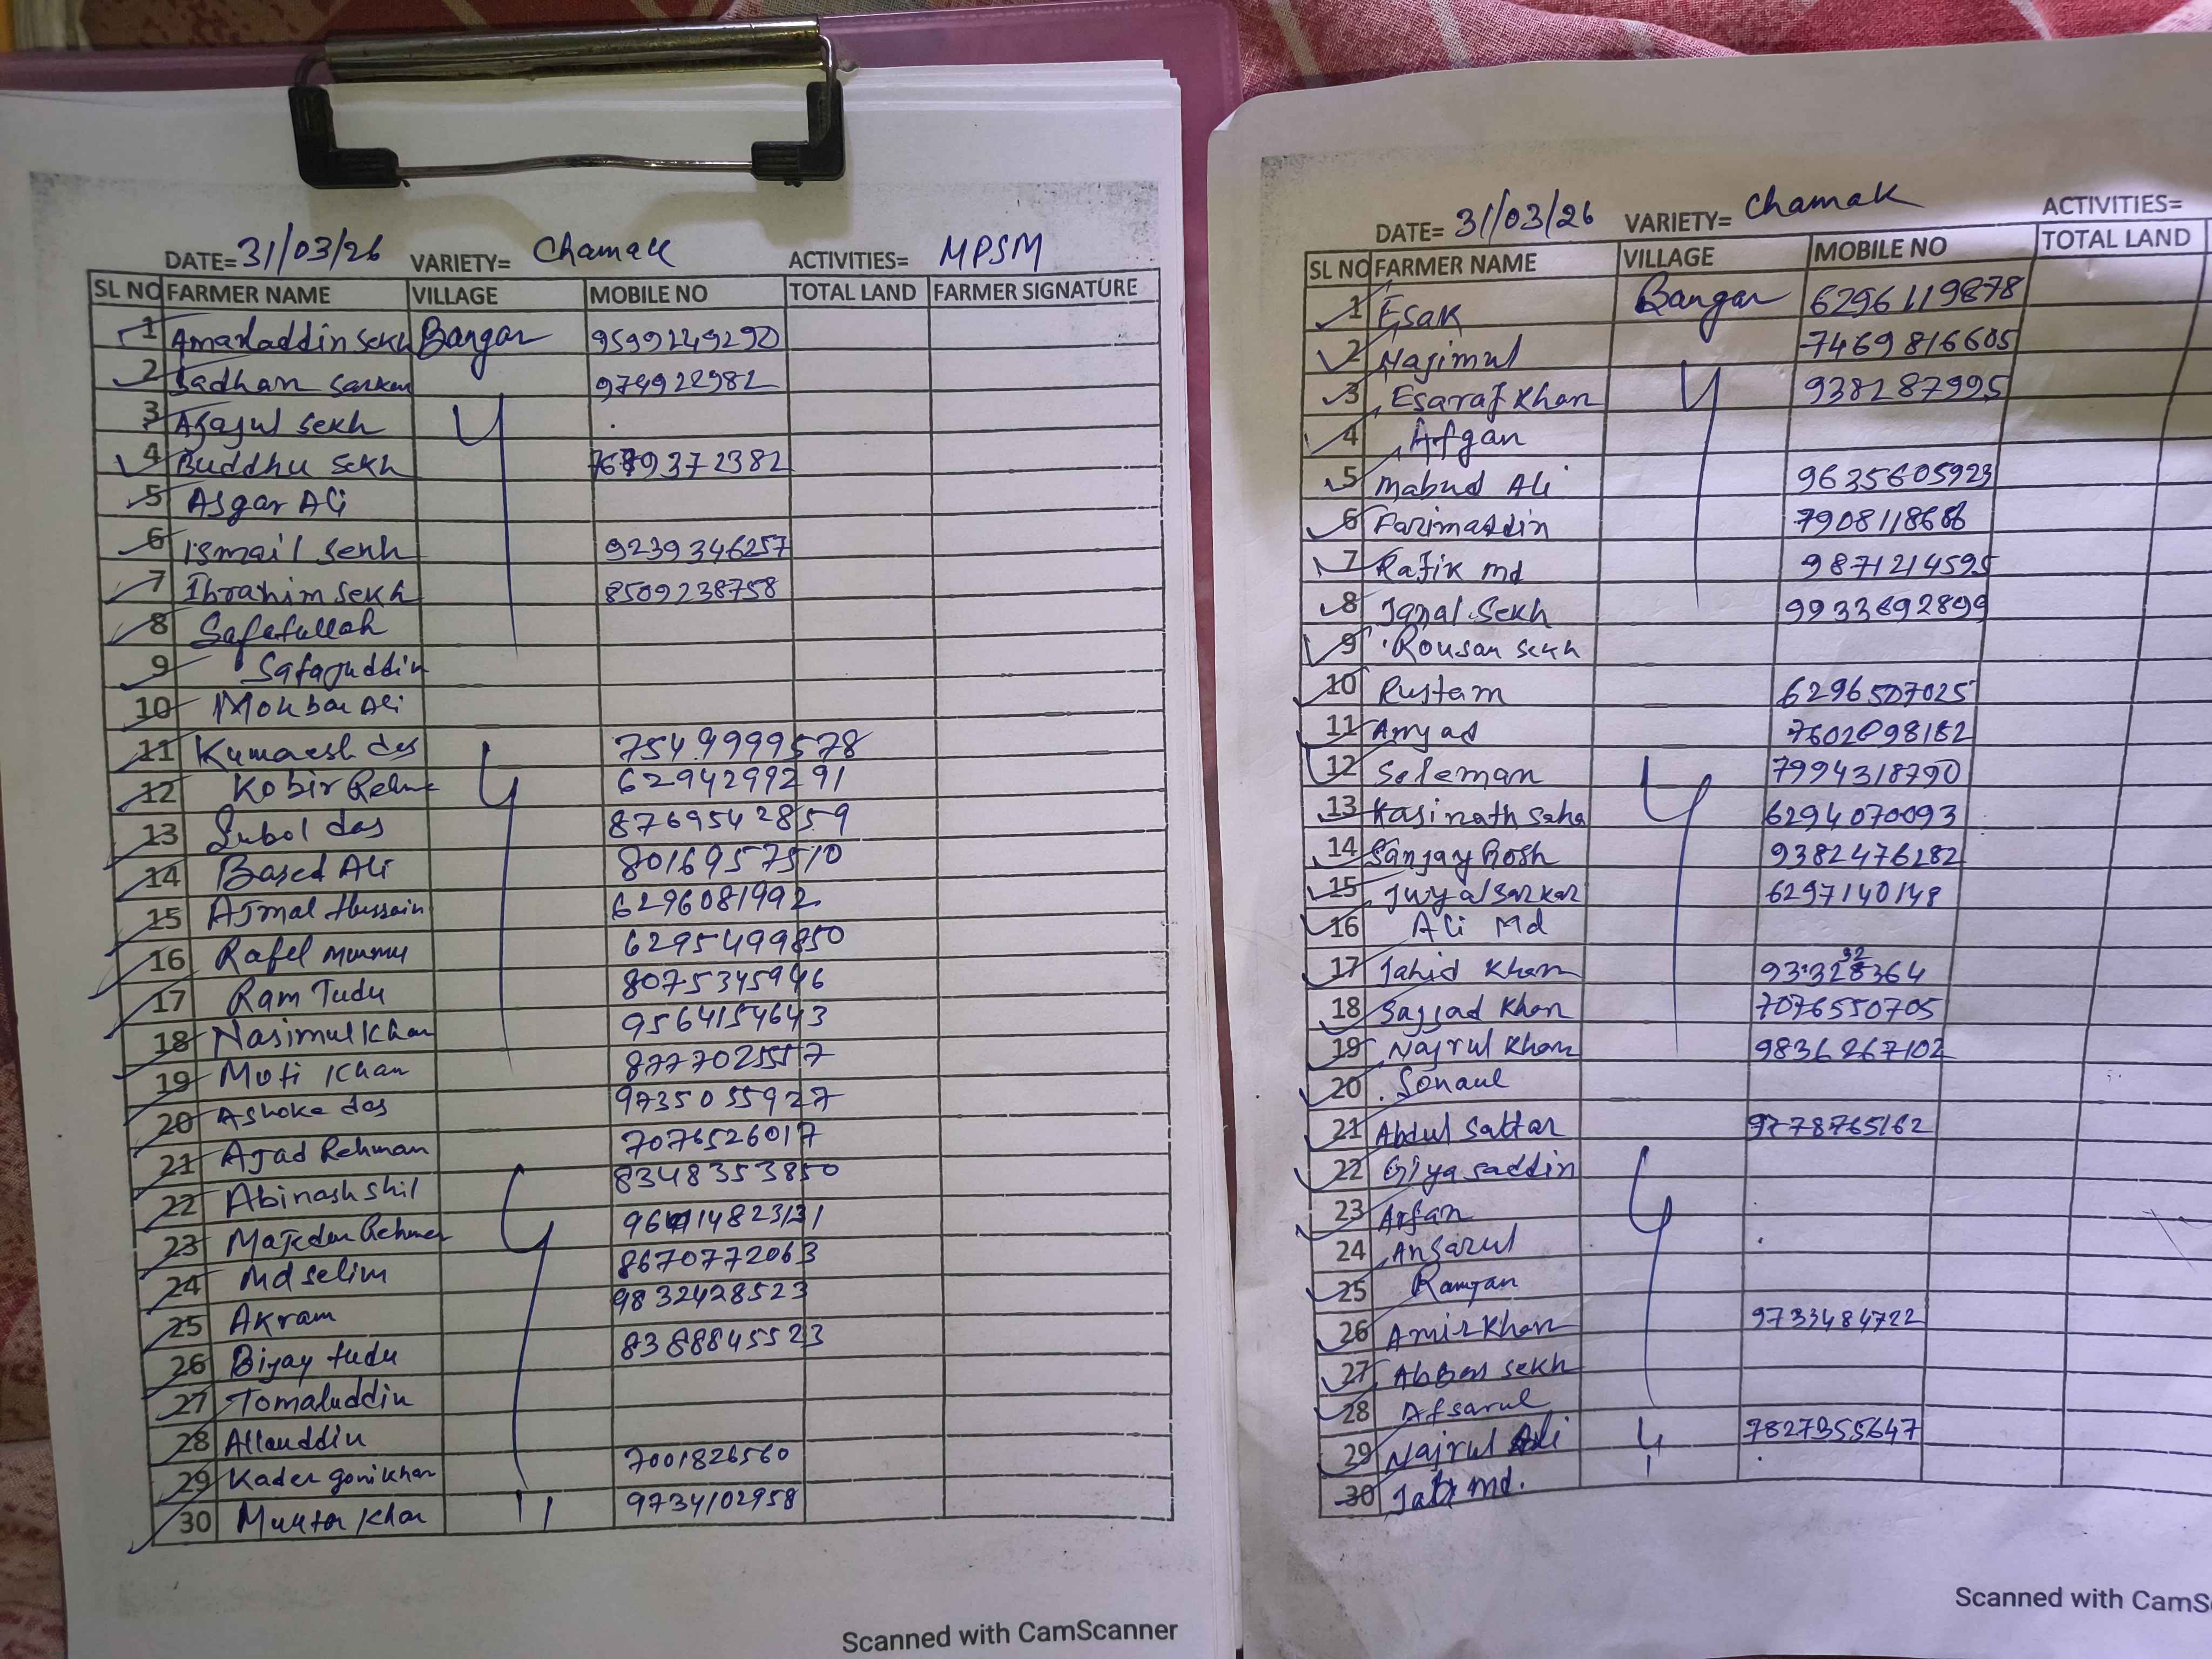 DATE= 31/03/26 VARIETY= Chamak ACTIVITIES= MPSM
SL NO FARMER NAME VILLAGE MOBILE NO TOTAL LAND FARMER SIGNATURE
1 Sekh Bangar 9599249290
2 Sadhan Sarkar 974922982
3 Ajajul Sekh
4 Buddhu Sekh
5 Asgar Ali
6 Ismail Sekh 9239346257
7 Ibrahim Sekh 8509238758
8 Safatullah
9 Safajuddin
10 Ali
11 Kumaresh das 7549999578
12 Kobir 6294299291
13 Subol das 8769542859
14 Based Ali 8016957510
15 Ajmal Hussain 6296081992
16 Rafel murmu 6295499850
17 Ram Tudu 8075345946
18 Nasimul Khan 9564154643
19 Moti Khan 8777025557
20 Ashoke das 9735055927
21 Ajad Rehman 7076526017
22 Abinash Shil 8348353850
23
24 Md Selim 8670772063
25 Akram 9832428523
26 Bijay tudu 8388845523
27 Tomaluddin
28 Allauddin
29 Kader goni khan 7001826560
30 Khan 9734102958
Scanned with CamScanner
DATE= 31/03/26 VARIETY= Chamak ACTIVITIES=
SL NO FARMER NAME VILLAGE MOBILE NO TOTAL LAND
1 Esak Bangar 6296119878
2 Najimul 7469816605
3 Esaraf Khan 938287995
4 Afgan
5 Mabud Ali 9635605923
6
7 Rafik md 9871214595
8 Sekh 9933692899
9 Rousan Sekh
10 Rustam 6296507025
11 Amjad
12 Soleman 7994318790
13 Kasinath Saha 6294070093
14 Sanjay 9382476282
15 Sarkar 6297140148
16 Ali Md
17 Jahid Khan
18 Sajjad Khan 7076550705
19 Najrul Khan 9836267102
20 Sonaul
21 Abdul Sattar 9778765162
22 Giyasaddin
23 Arfan
24 Ansarul
25 Ramjan
26 Amir Khan 9733484722
27 Abbas Sekh
28 Afsarul
29 Najrul Ali 7827355647
30 md.
Scanned with CamS